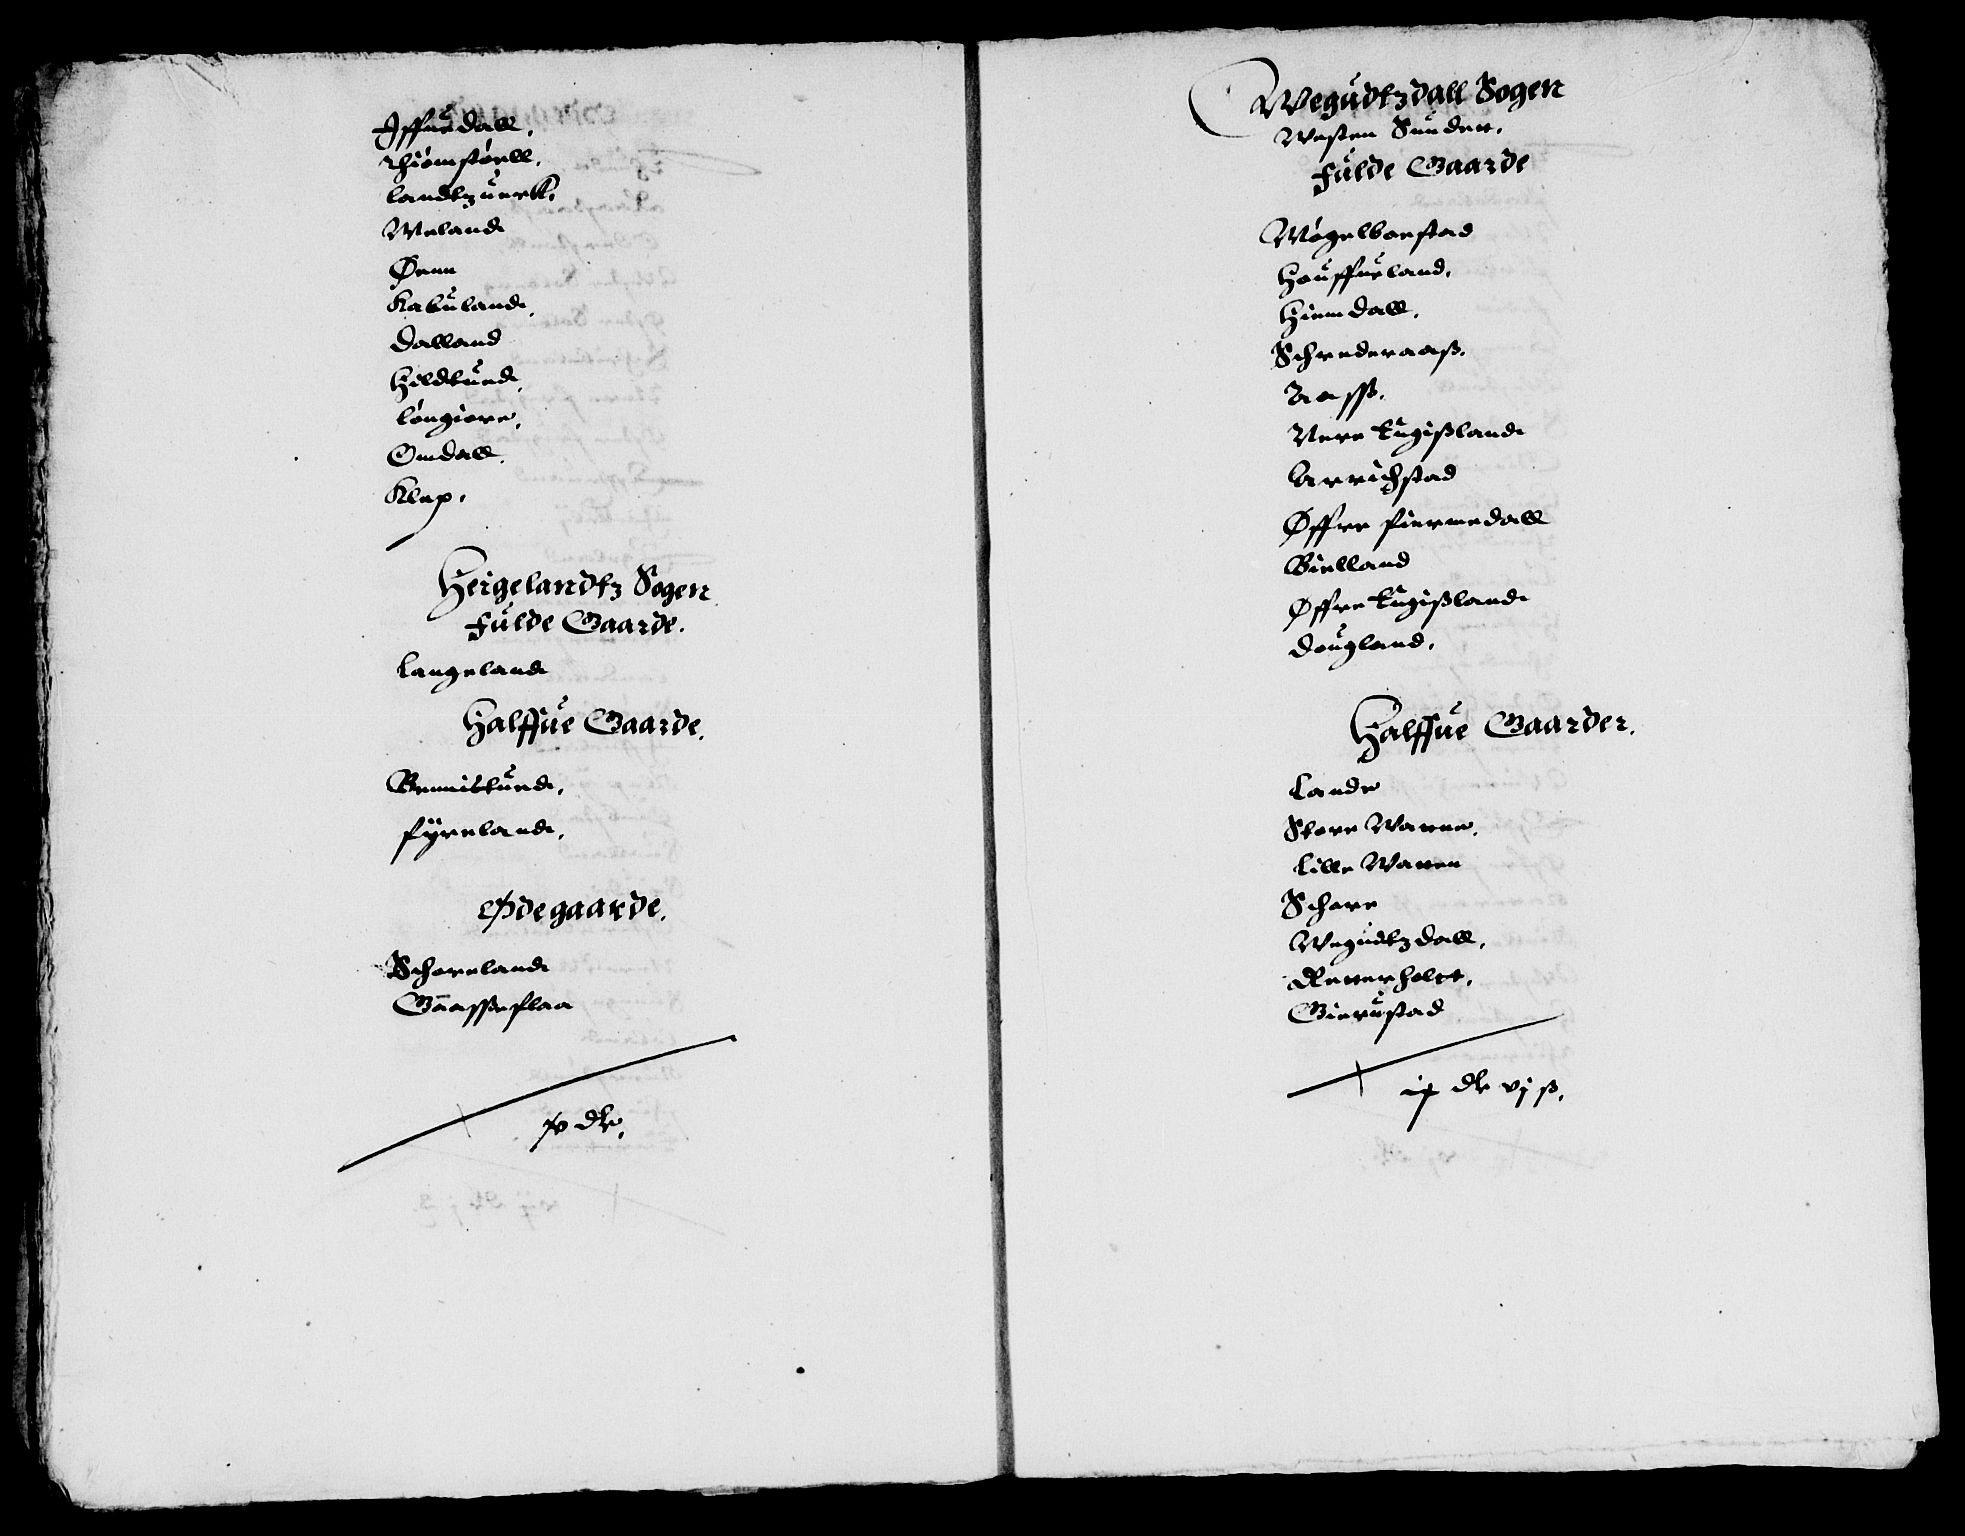 Iffuedall,
Thiömstöell,
landtzuerk,
Weland
Øenn
Kabuland,
Dalland
Hildtund,
löngiore,
Omdall,
Klep,
Heigelandtz Sogen
Fulde Gaarde.
Langeland
Halffue Gaarde.
Bennistued,
fÿreland,
Ødegaarde.
Schoreland
Gaasseflaa
v dlr,
Wegudtzdall Sogen
Westen Sunden.
Fulde Gaarde
Mögelbostad
Houffueland,
Hiemdall,
Schrederaaß,
Aasß,
Nere Eugißland
Berrichstad
Øffre fiermedall
Bielland
Øffre Eugißland
Dougland,
Halffue Gaarder.
Lande
Store Wanne,
Lille Wanen
Schore
Wegudtzdall,
Reuerholtt,
Gierustad
ix dlr vj ß,